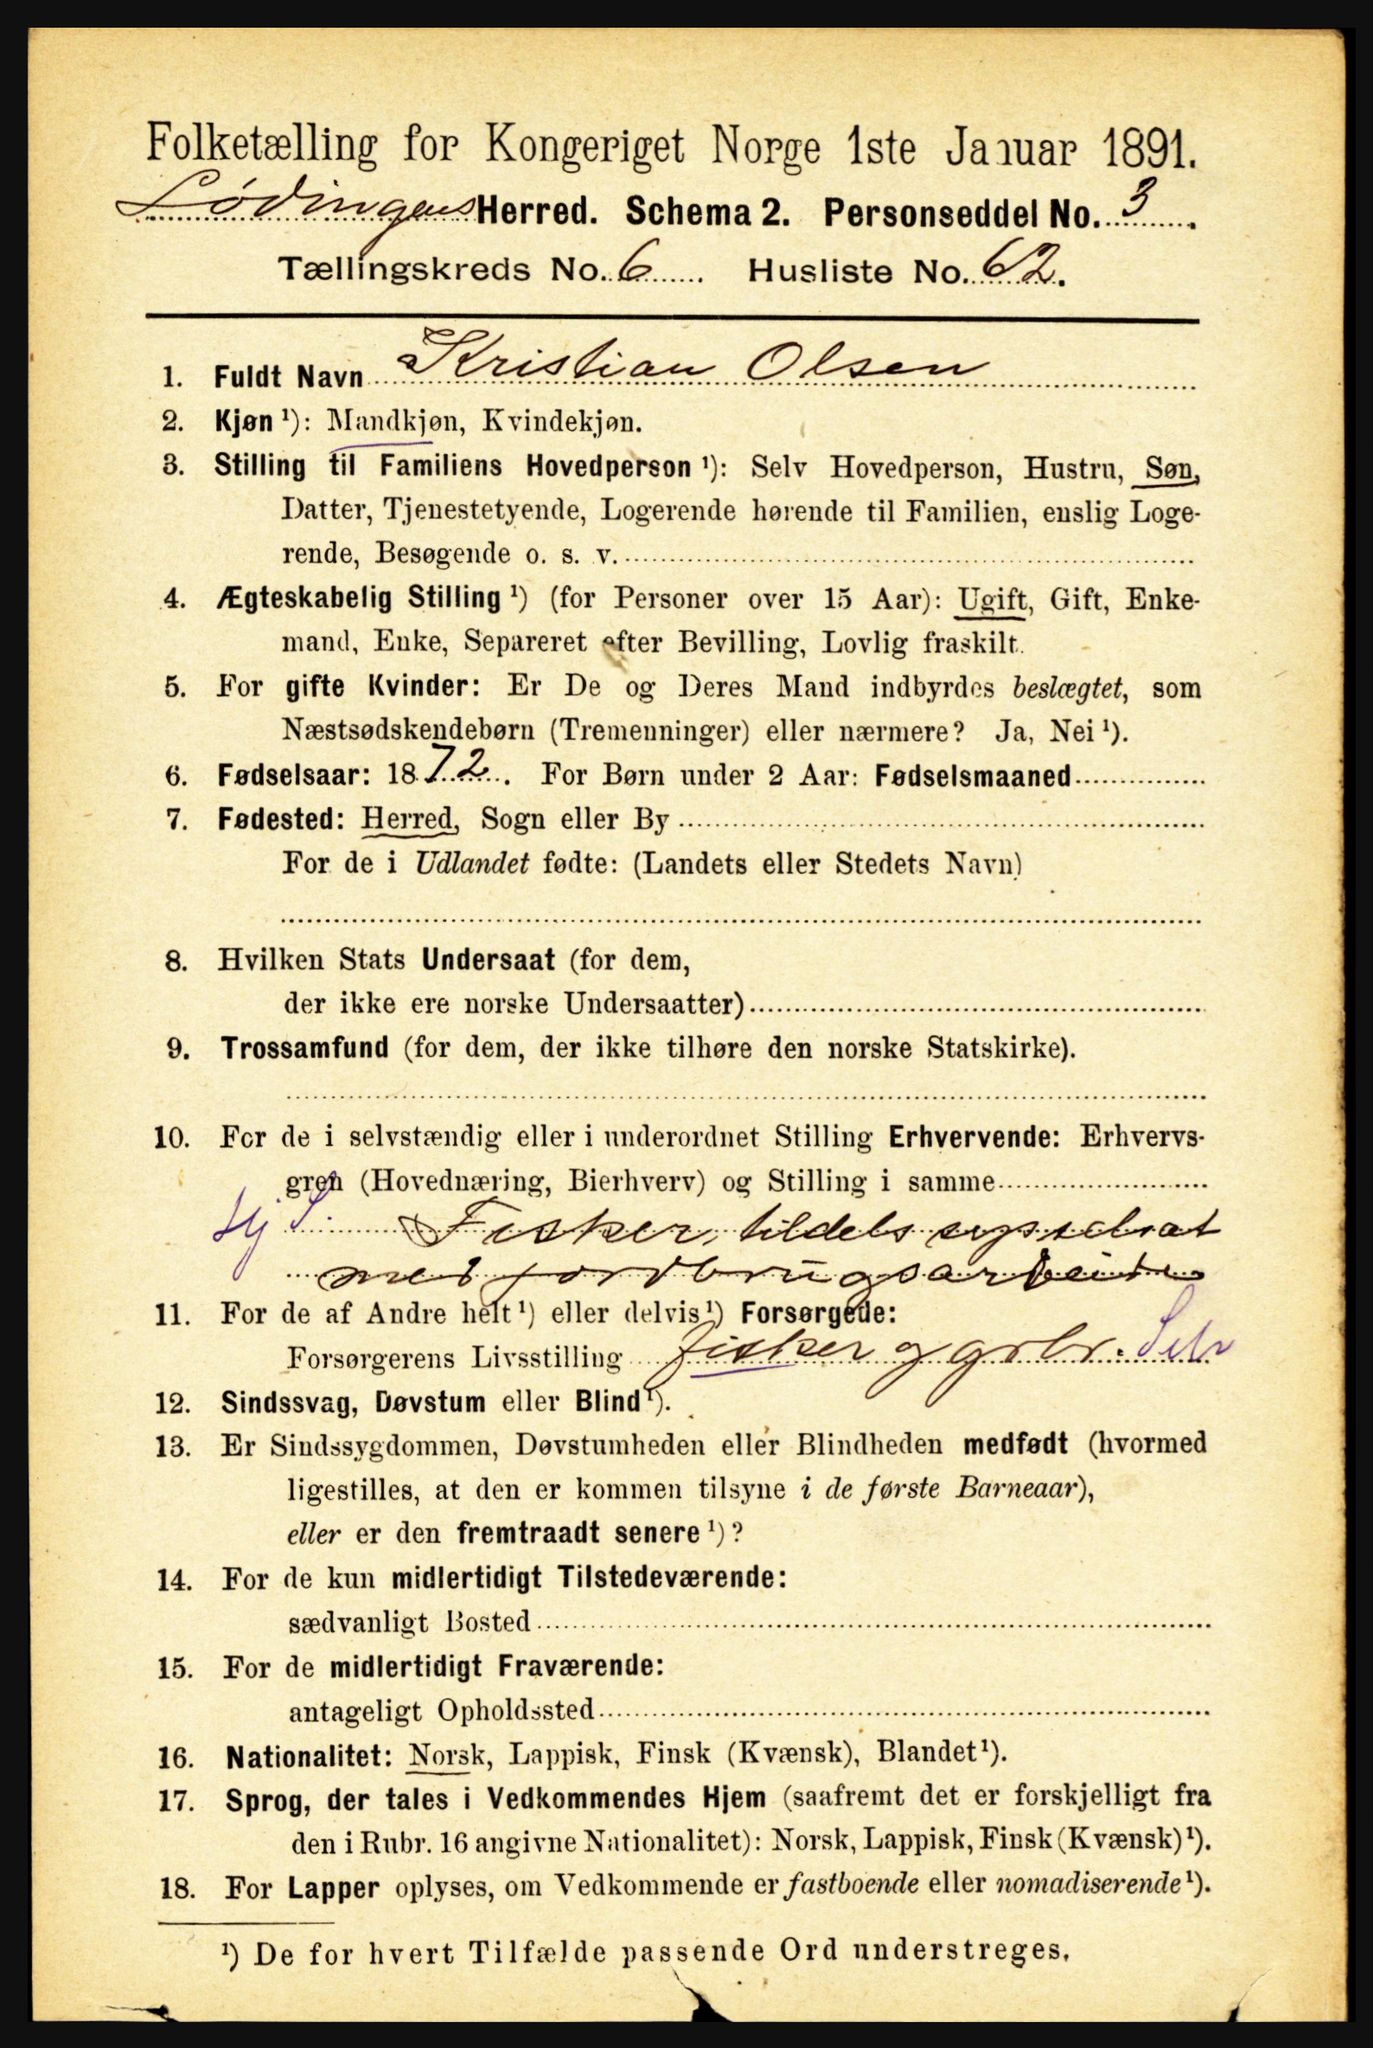 Folketælling for Kongeriget Norge 1ste Januar 1891.
Lødingens Herred. Schema 2. Personseddel No. 3.
Tællingskreds No. 6. Husliste No. 62.
1. Fuldt Navn Kristian Olsen
2. Kjøn ¹): Mandkjøn, Kvindekjøn.
3. Stilling til Familiens Hovedperson ¹): Selv Hovedperson, Hustru, Søn,
Datter, Tjenestetyende, Logerende hørende til Familien, enslig Loge-
rende, Besøgende o. s. v.
4. Ægteskabelig Stilling ¹) (for Personer over 15 Aar): Ugift, Gift, Enke-
mand, Enke, Separeret efter Bevilling, Lovlig fraskilt.
5. For gifte Kvinder: Er De og Deres Mand indbyrdes beslægtet, som
Næstsødskendebørn (Tremenninger) eller nærmere? Ja, Nei ¹).
6. Fødselsaar: 1872. For Børn under 2 Aar: Fødselsmaaned
7. Fødested: Herred, Sogn eller By
For de i Udlandet fødte: (Landets eller Stedets Navn)
8. Hvilken Stats Undersaat (for dem,
der ikke ere norske Undersaatter)
9. Trossamfund (for dem, der ikke tilhøre den norske Statskirke).
10. For de i selvstændig eller i underordnet Stilling Erhvervende: Erhvervs-
gren (Hovednæring, Bierhverv) og Stilling i samme
Fisker, tildels sysselsat
med jordbrugsarbeide
11. For de af Andre helt ¹) eller delvis ¹) Forsørgede:
Forsørgerens Livsstilling fisker og grbr. Selv
12. Sindssvag, Døvstum eller Blind ¹).
13. Er Sindssygdommen, Døvstumheden eller Blindheden medfødt (hvormed
ligestilles, at den er kommen tilsyne i de første Barneaar),
eller er den fremtraadt senere ¹)?
14. For de kun midlertidigt Tilstedeværende:
sædvanligt Bosted
15. For de midlertidigt Fraværende:
antageligt Opholdssted
16. Nationalitet: Norsk, Lappisk, Finsk (Kvænsk), Blandet ¹).
17. Sprog, der tales i Vedkommendes Hjem (saafremt det er forskjelligt fra
den i Rubr. 16 angivne Nationalitet): Norsk, Lappisk, Finsk (Kvænsk) ¹).
18. For Lapper oplyses, om Vedkommende er fastboende eller nomadiserende ¹).
¹) De for hvert Tilfælde passende Ord understreges.